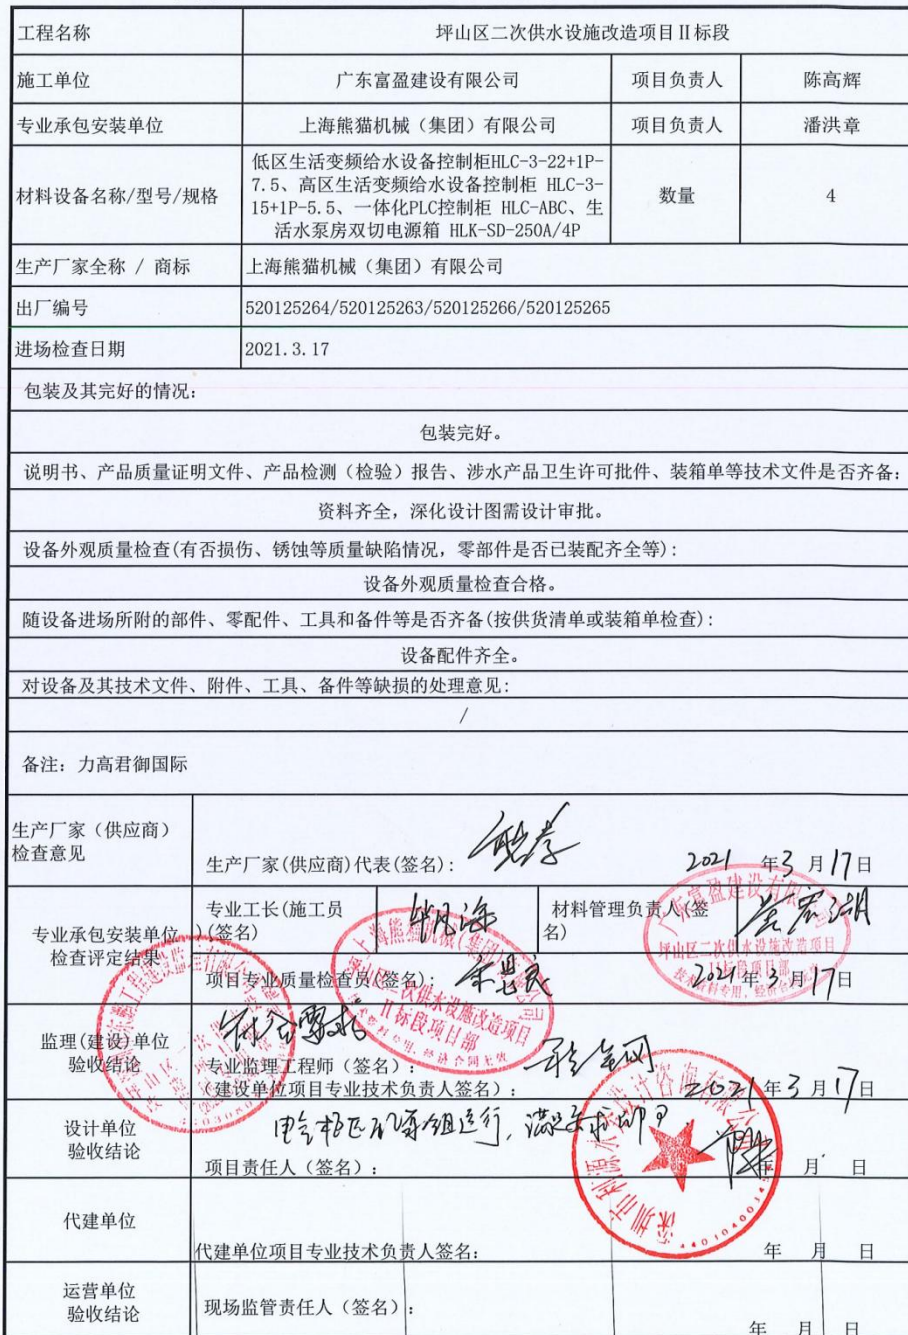 工程名称 坪山区二次供水设施改造项目Ⅱ标段
施工单位 广东富盈建设有限公司 项目负责人 陈高辉
专业承包安装单位 上海熊猫机械（集团）有限公司 项目负责人 潘洪章
材料设备名称/型号/规格 低区生活变频给水设备控制柜HLC-3-22+1P-
7.5、高区生活变频给水设备控制柜 HLC-3-
15+1P-5.5、一体化PLC控制柜 HLC-ABC、生
活水泵房双切电源箱 HLK-SD-250A/4P
数量 4
生产厂家全称 / 商标 上海熊猫机械（集团）有限公司
出厂编号 520125264/520125263/520125266/520125265
进场检查日期 2021.3.17
包装及其完好的情况：
包装完好。
说明书、产品质量证明文件、产品检测（检验）报告、涉水产品卫生许可批件、装箱单等技术文件是否齐备：
资料齐全，深化设计图需设计审批。
设备外观质量检查(有否损伤、锈蚀等质量缺陷情况，零部件是否已装配齐全等)：
设备外观质量检查合格。
随设备进场所附的部件、零配件、工具和备件等是否齐备(按供货清单或装箱单检查)：
设备配件齐全。
对设备及其技术文件、附件、工具、备件等缺损的处理意见:
/
备注：力高君御国际
生产厂家（供应商）
检查意见
生产厂家(供应商)代表(签名)： 2021 年 3 月 17 日
专业承包安装单位
检查评定结果
专业工长(施工员
)(签名)
材料管理负责人(签
名)
广东富盈建设有限公司
坪山区二次供水设施改造项目
Ⅱ标段项目部
项目专业质量检查员(签名)： 2021 年 3 月 17 日
上海熊猫机械(集团)有限公司
坪山区二次供水设施改造项目
Ⅱ标段项目部
监理(建设)单位
验收结论
专业监理工程师（签名）：
（建设单位项目专业技术负责人签名）： 2021 年 3 月 17 日
设计单位
验收结论
项目责任人（签名）： 年 月 日
深圳市利源水务设计咨询有限公司
代建单位
代建单位项目专业技术负责人签名： 年 月 日
运营单位
验收结论
现场监管责任人（签名）：
年 月 日